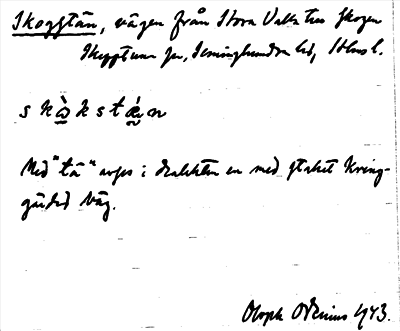 Skogstån, vägen från Stora Valla till Skogen
Skepptuna sn, Seminghundra hd, Sthms l.
s k å k s t æ n
Med "tå" avses i dialekten en med staket kring-
gärdad väg.
Oloph Odenius 1943.